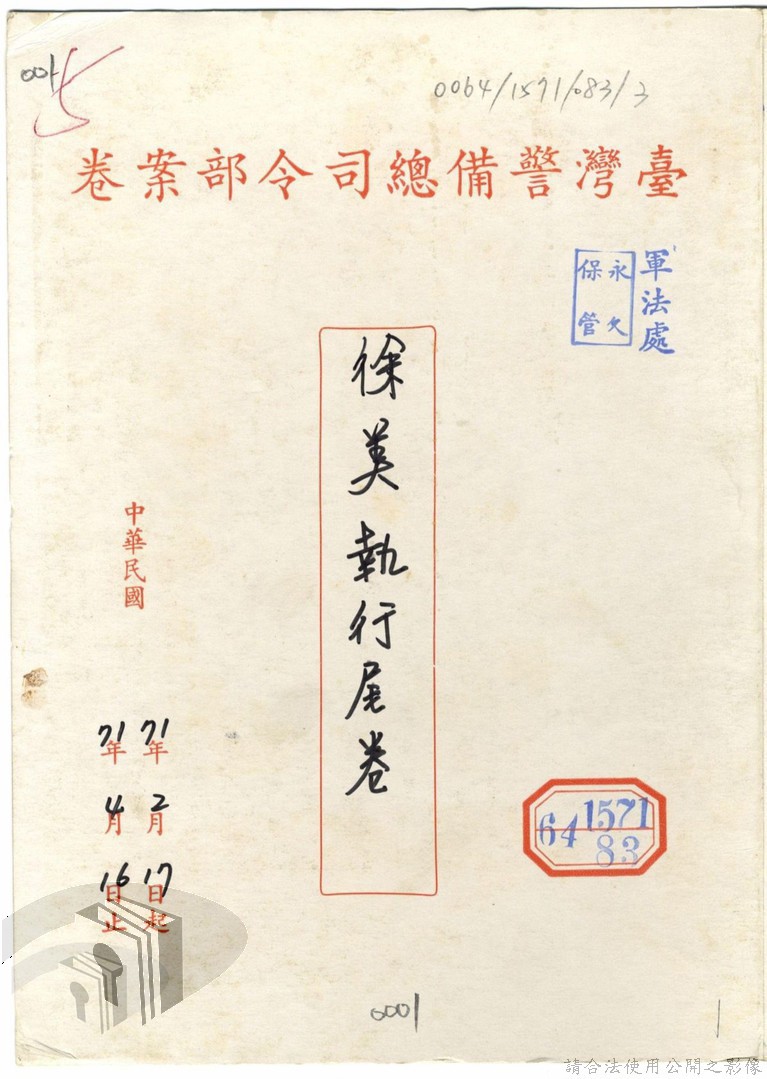 001
5
0064/1571/083/3
臺灣警備總司令部案卷
軍法處
永久
保管
徐美執行尾卷
中華民國
71年2月17日起
71年4月16日止
64 1571
83
0001
請合法使用公開之影像